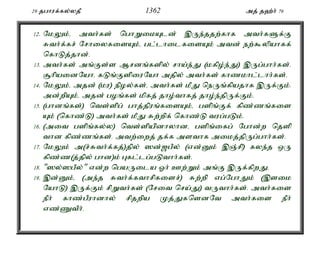 29 தபாரக்கல்லதீ 1362 அத் தஹ்ர் 76
12. மேலும், அவர்கள் பொறுமையுடன் இருந்ததற்காக அவர்களுக்கு
சுவர்க்கச் சோலைகளையும், பட்டாடைகளையும் அவன் நற்கூலியாகக்
கொடுத்தான்.
13. அவர்கள் அங்குள்ள ஆசனங்களில் சாய்ந்து (மகிழ்ந்து) இருப்பார்கள்.
சூரியனையோ, கடுங்குளிரையோ அதில் அவர்கள் காணமாட்டார்கள்.
14. மேலும், அதன் (மர) நிழல்கள், அவர்கள் மீது நெருங்கியதாக இருக்கும்;
அன்றியும், அதன் பழங்கள் மிகத் தாழ்வாகத் தாழ்ந்திருக்கும்.
15. (பானங்கள்) வெள்ளிப் பாத்திரங்களையும், பளிங்குக் கிண்ணங்களை
யும் (கொண்டு) அவர்கள் மீது சுற்றிக் கொண்டு வரப்படும்.
16. (அவை பளிங்கல்ல) வெள்ளியினாலான, பளிங்கைப் போன்ற தெளி
வான கிண்ணங்கள். அவற்றைத் தக்க அளவாக அமைத்திருப்பார்கள்.
17. மேலும் அ(ச்சுவர்க்கத்)தில் ஸன்ஜபீல் (என்னும் இஞ்சி) கலந்த ஒரு
கிண்ண(த்தில் பான)ம் புகட்டப்படுவார்கள்.
18. "ஸல்ஸபீல்" என்ற பெயருடைய ஓர் ஊற்றும் அங்கு இருக்கிறது.
19. இன்னும், (அந்த சுவர்க்கவாசிகளைச்) சுற்றி எப்போதும் (இளமை
யோடு) இருக்கும் சிறுவர்கள் (சேவை செய்து) வருவார்கள். அவர்களை
நீர் காண்பீரானால் சிதறிய முத்துகளெனவே அவர்களை நீர்
எண்ணுவீர்.